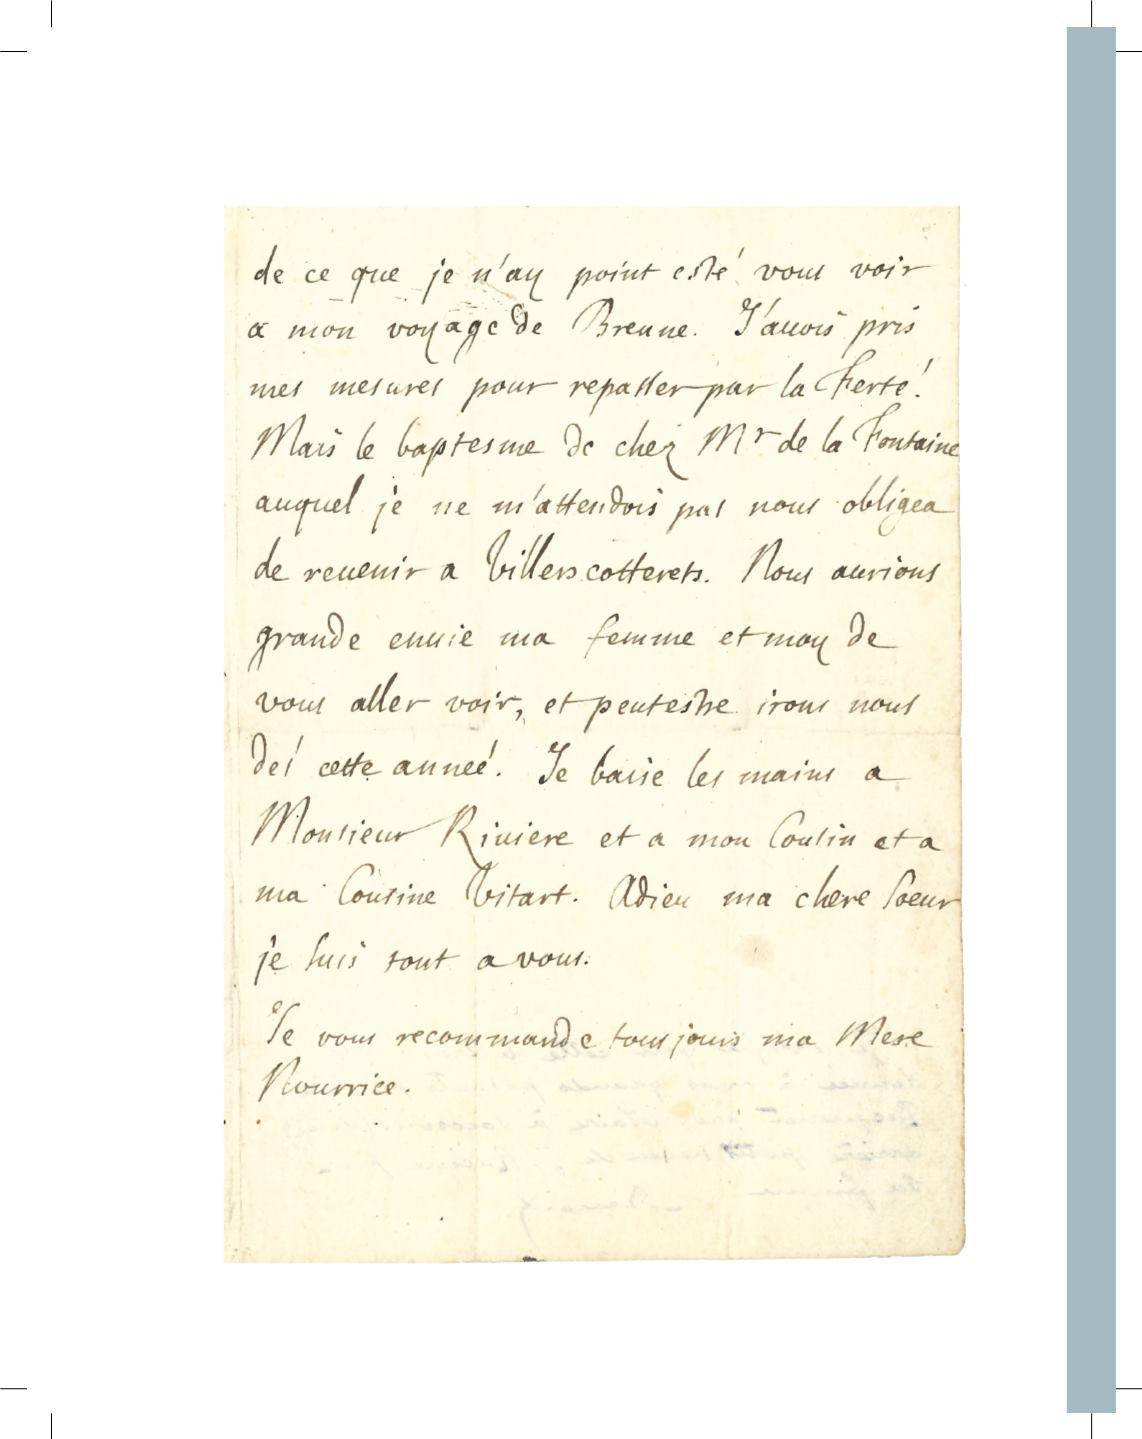 de ce que je n'ay point esté vous voir
a mon voyage de Breune. J'auois pris
mes mesures pour repasser par la Ferté.
Mais le baptesme de chez Mr de la Fontaine
auquel je ne m'attendois pas nous obligea
de reuenir a Villerscotterets. Nous aurions
grande enuie ma femme et moy de
vous aller voir, et peutestre irons nous
dés cette anneé. Je baise les mains a
Monsieur Riuiere et a mon Cousin et a
ma Cousine Vitart. Adieu ma chere Soeur
je suis tout a vous.
Je vous recommande tousjours ma Mere
Nourrice.